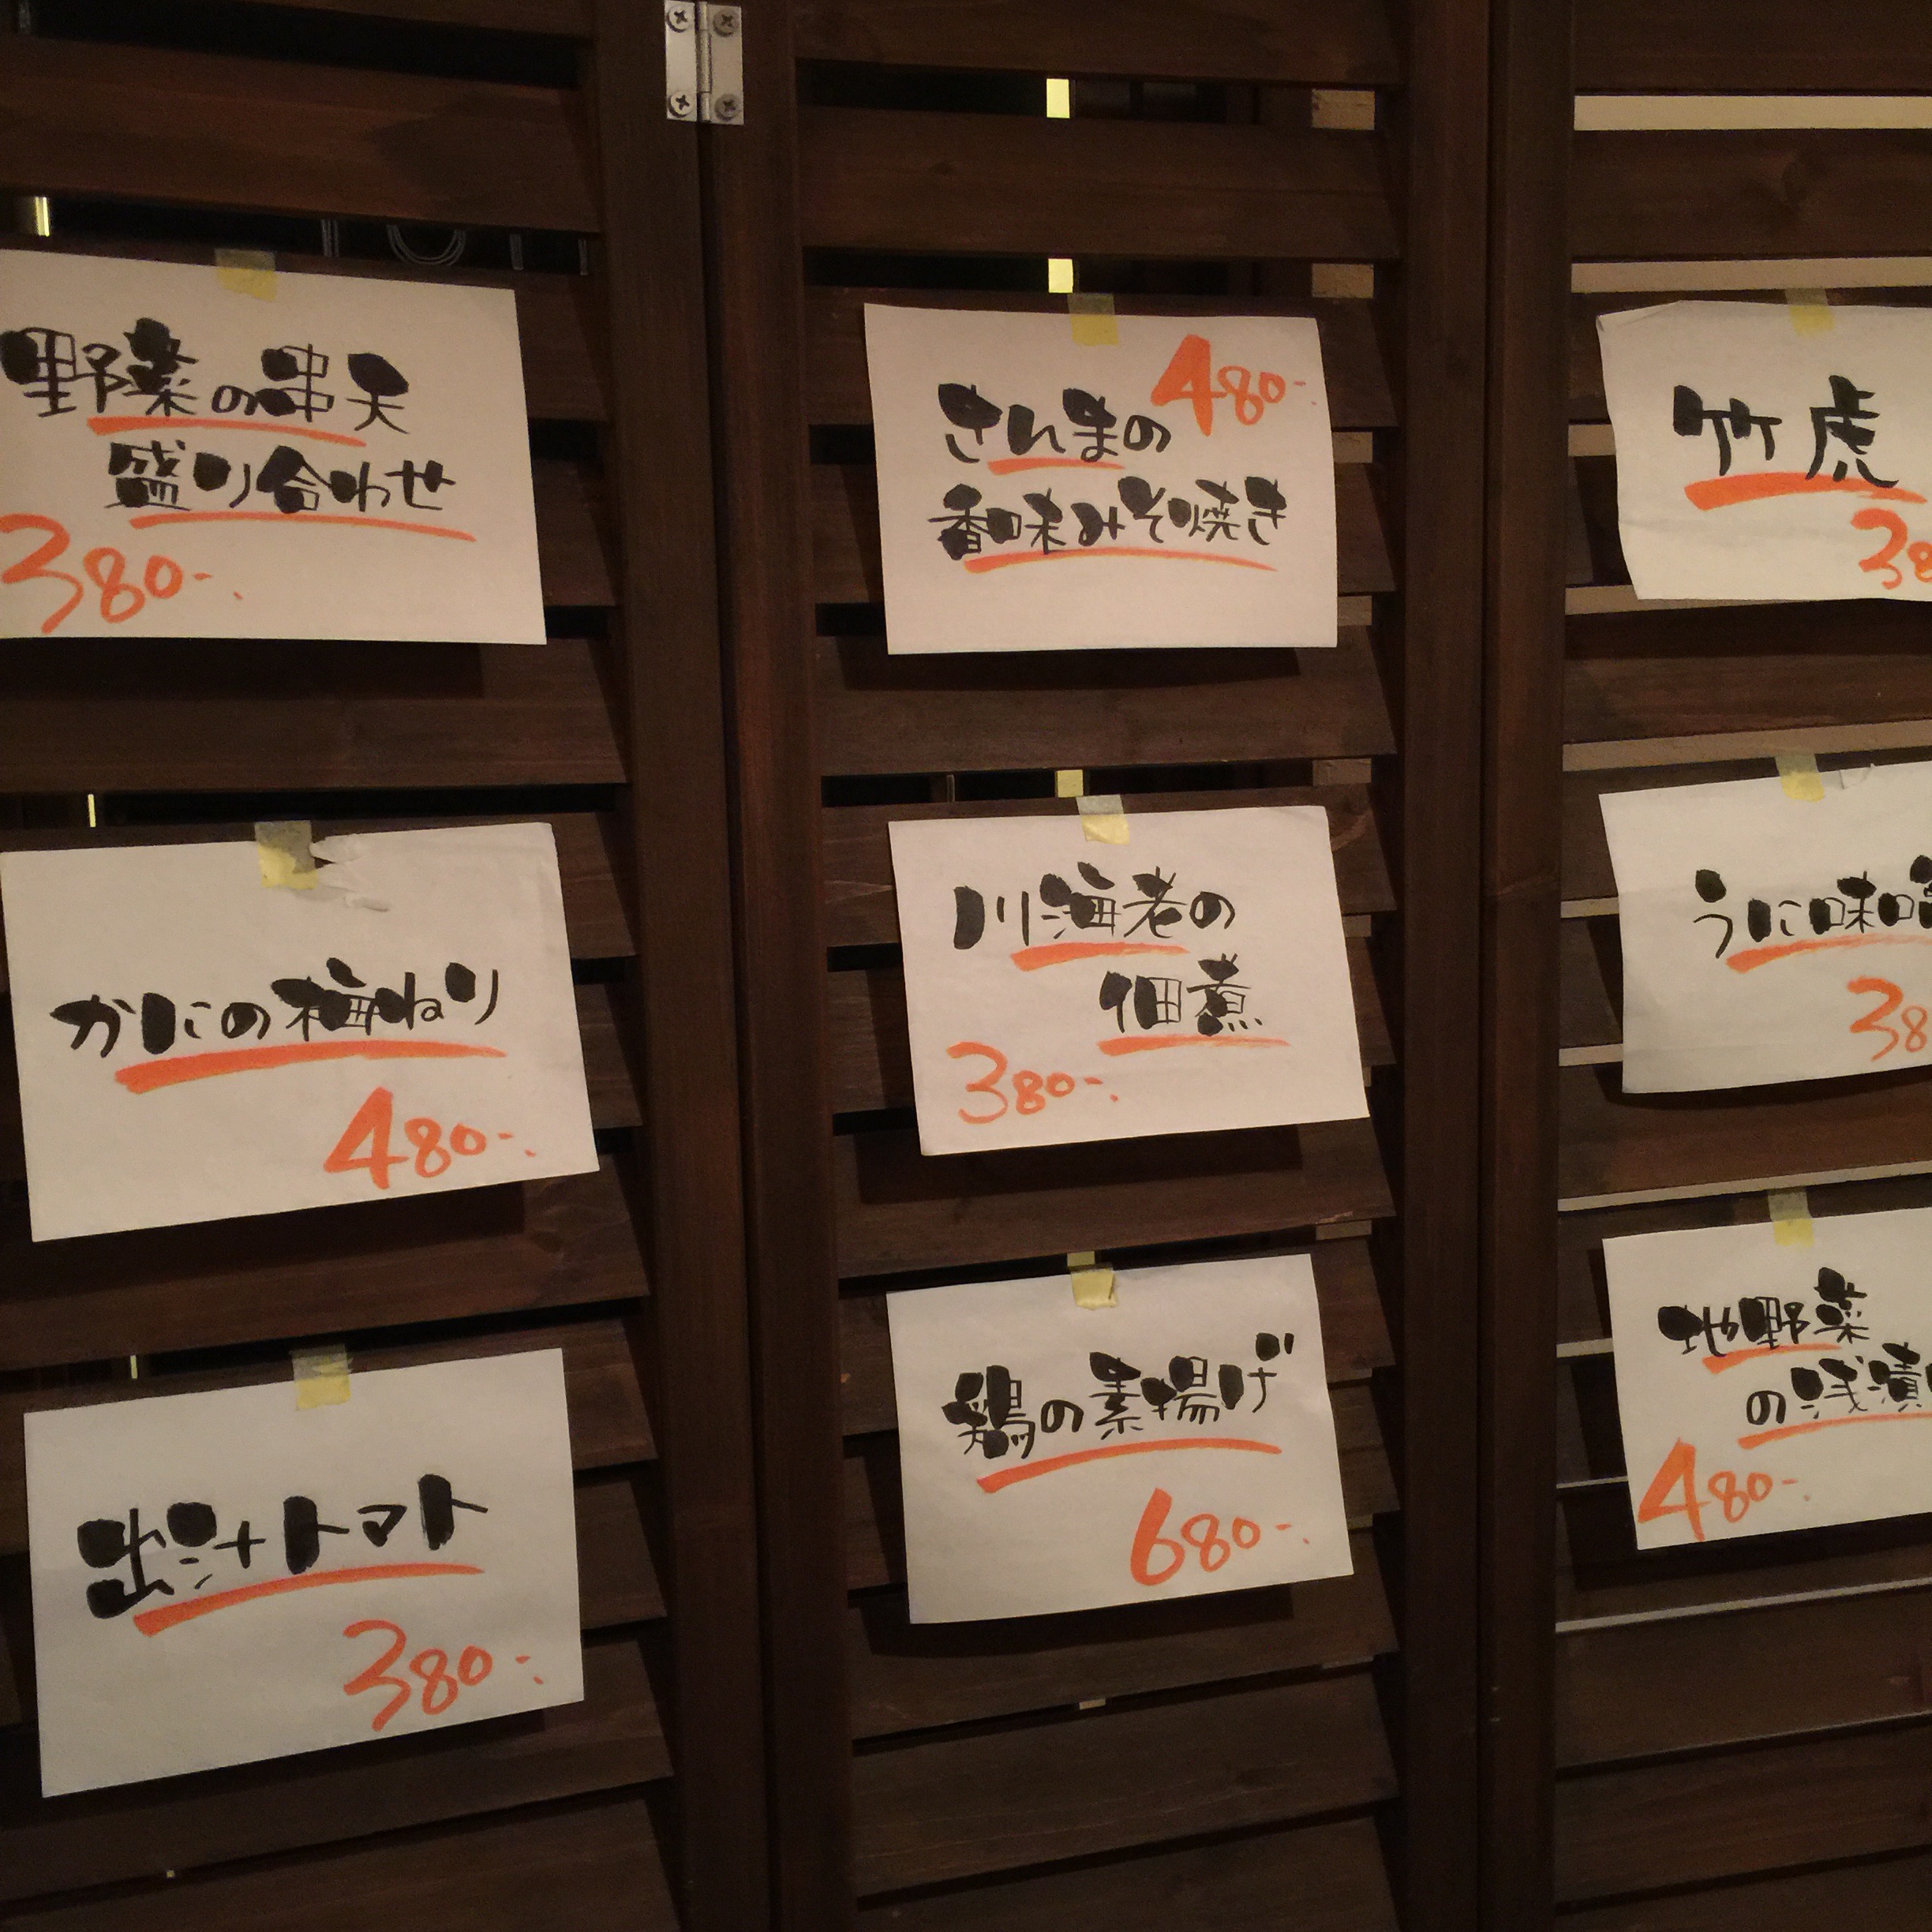 野菜の串天
盛り合わせ
380-.
かにの梅ねり
480-.
出汁トマト
380-.
480-.
さんまの
香味みそ焼き
川海老の
佃煮
380-.
鶏の素揚げ
680-.
竹虎
38
うに味噌
38
地野菜
の浅漬
480-.